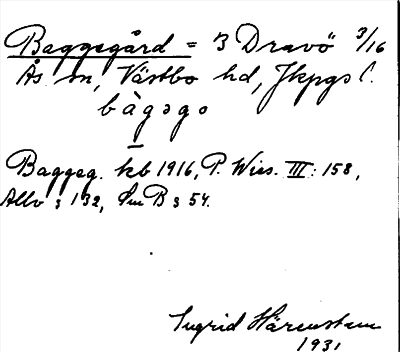 Baggegård = 3 Dravö 3/16
Ås sn, Västbo hd, Jkpgs l.
bàgəgo
Baggeg. kb 1916, P. Wies. III: 158,
Allv s 132, Sm B s 54.
Ingrid Härenstam
1931